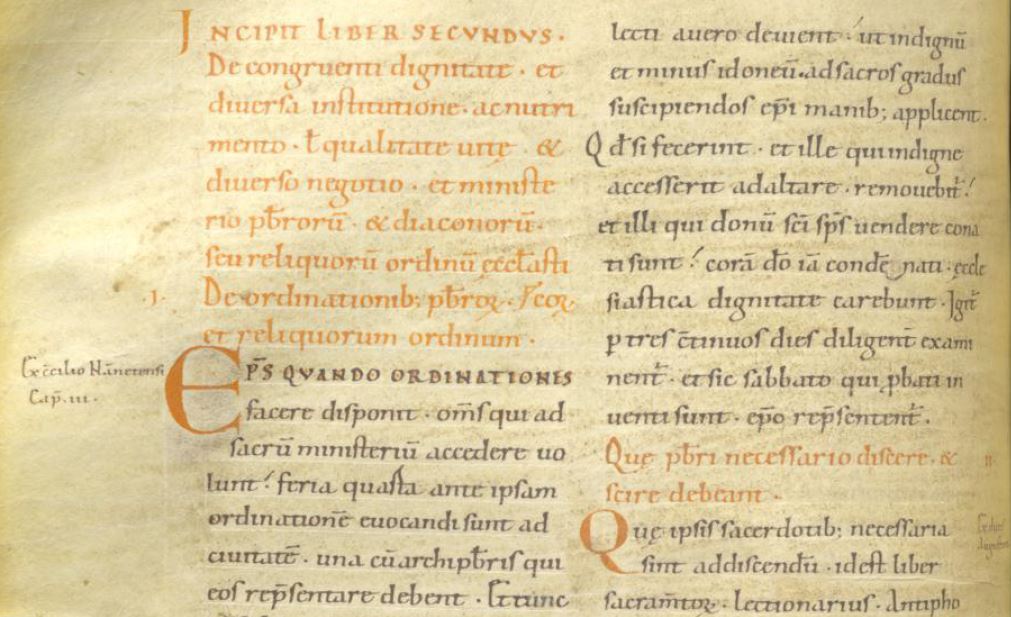 INCIPIT LIBER SECVNDVS.
De congruenti dignitate · et
diversa institutione · ac nutri
mento · ł qualitate uitę · &
diuerso negotio · et ministe
rio pb̅rorū · & diaconorū ·
seu reliquorū ordinū ęccl̅asti
.I. De ordinationib; pb̅roꝝ ·
et reliquorum ordinum ·
Ex c̅cilio Nan̅etensi
Cap̅. III.
EP̅S QVANDO ORDINATIONES
facere disponit · om̅s qui ad
sacrū ministeriū accedere uo
lunt; feria quarta ante ipsam
ordinationē euocandi sunt ad
ciuitatē · una cū archipb̅ris qui
eos rep̅sentare debent · Et tunc
lecti auero deuient · ut indignū
et minus idoneū · ad sacros gradus
suscipiendos ep̅i manib; applicent.
Qd̅ si fecerint · et ille qui indigne
accesserit ad altare · remouebit᷑;
et illi qui donū sc̅i sp̅s uendere cona
ti sunt; corā dō iā condē nati · ęccle
siastica dignitate carebunt · Igit᷑
p tres c̅tinuos dies diligent̅ exami
nent᷑ · et sic sabbato qui ꝓbati in
uenti sunt · ep̅o rep̅sentent᷑ ·
Quę pb̅ri necessario discere · & II.
scire debeant ·
Quę ipsis sacerdotib; necessaria
sint ad discendū · id est liber
sacram̅toꝝ · lectionarius · Antipho